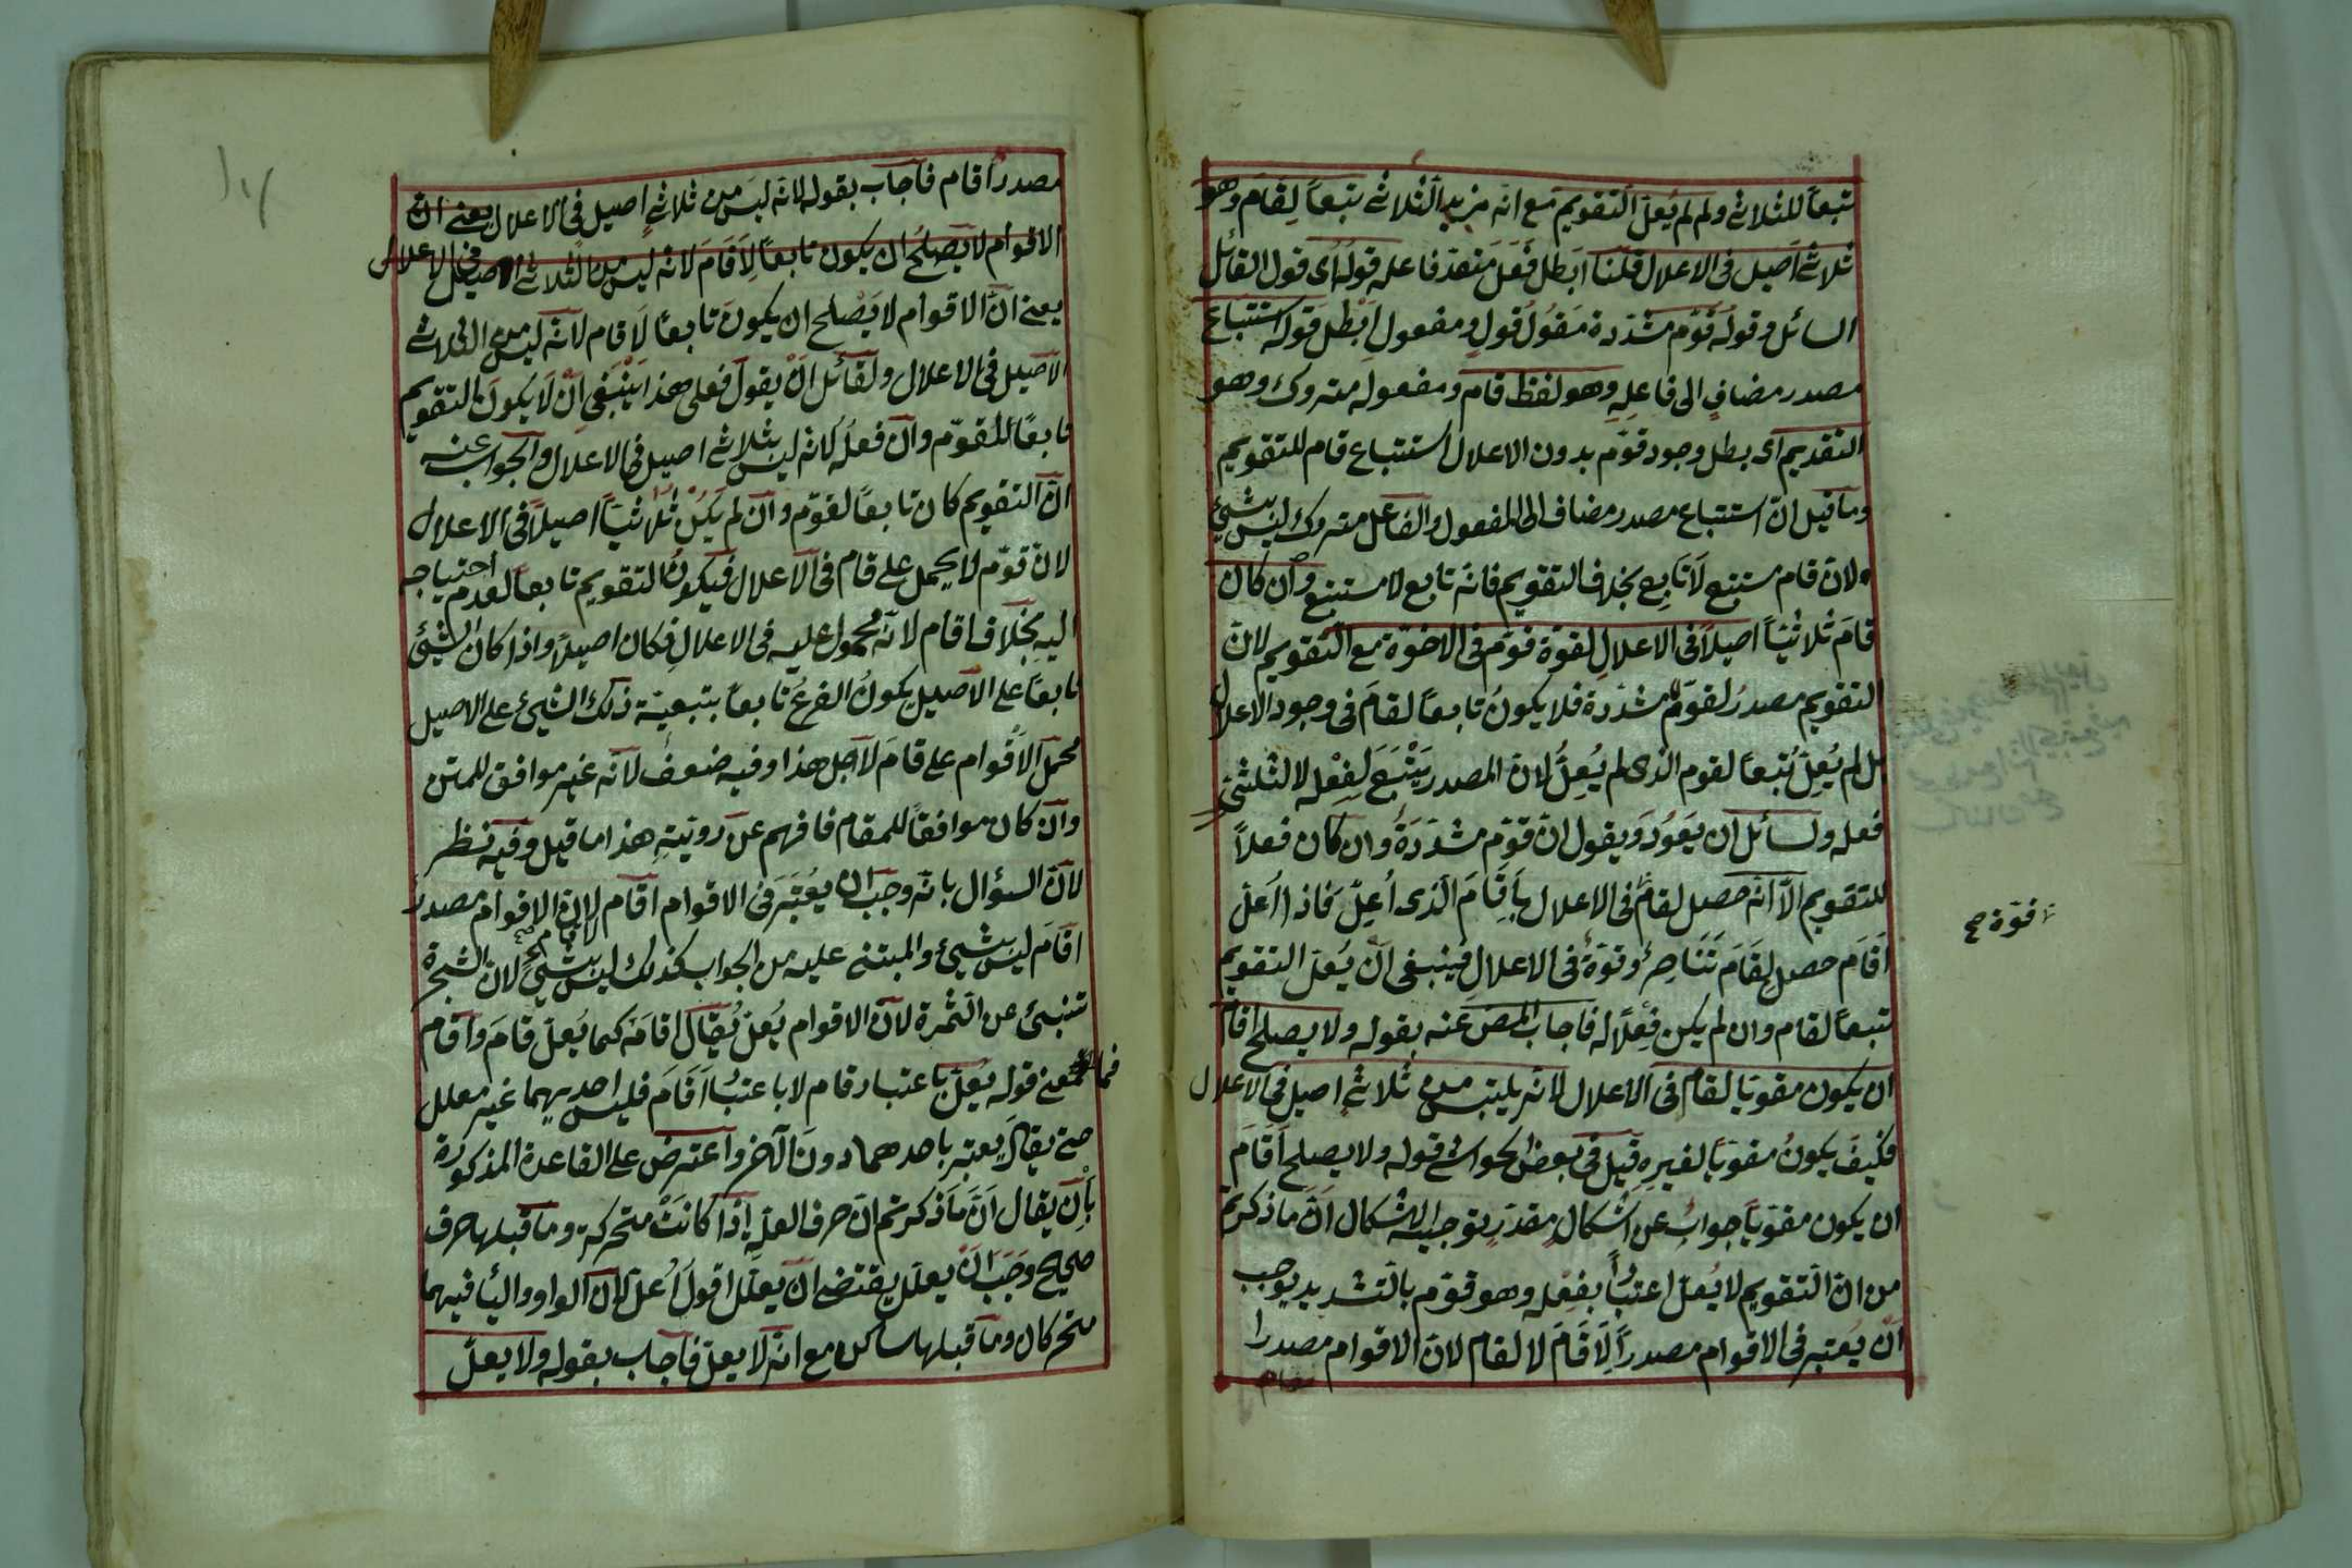 تبعاً للثلاثي ولم لم يُعلّ التقويم مع انه مزيد الثلاثي تبعاً لِقَامَ وهو
ثلاثي اصيل في الاعلال قلنا ابطل فَعَلَ متعد فاعله قوله اى قول القائل
السائل وقوله قوّم مشدّدة مَقُولُ قولٍ ومفعول ابطل قوله استتباع
مصدر مضاف الى فاعله وهو لفظ قام ومفعوله متروك وهو
التقديم اى بطل وجود قوّم بدون الاعلال استتباع قام للتقويم
وما قيل انّ استتباع مصدر مضاف الى المفعول والفاعل متروك ليس بشيئ
ولانّ قام مستتبع لا تابع بخلاف التقويم فانه تابع لا مستتبع وان كان
قامَ ثلاثيّاً اصيلاً في الاعلالِ لقوة قوّم في الاخوّة مع التقويم لانّ
التقويم مصدرُ لقوّم مشدّدة فلا يكونُ تابعاً لقامَ في وجود الاعلال
بل لم يُعلّ تبعاً لقوم الذى لم يُعلّ لانّ المصدر يَتْبَعَ لِفِعْله لا لثلثى
فعله ولسائل ان يَعَودَ ويقول انّ قوّم مشدّدَةً وان كان فعلاً
للتقويم الّا انّه حصل لقام في الاعلال بأقَامَ الّذى أُعِلّ فاذا أُعلّ
اَقَامَ حصل لِقَامَ تَنَاصِرٌ وقوّةٌ في الاعلالِ فينبغى انْ يُعلّ التقويم
تبعاً لقام وان لم يكن فِعْلاً له فاجاب المص عنه بقوله ولا يصلح اقام
ان يكون مقويا لقام في الاعلال لانه ليس من ثلاثي اصيل في الاعلال
فكيف يكونُ مقوياً لغيرهِ قيل في بعض الحواشى قوله ولا يصلح اَقَامَ
ان يكون مقوّياً جوابٌ عن اشكالٍ مقدّرٍ توجيه الاشكال انّ ما ذكرتم
من انّ التّقويم لا يُعلّ اعتباراً بفِعْله وهو قوّم بالتشديد يوجب
انْ يُعتبر في الاقوام مصدراً لِاَقَامَ لا لقام لانّ الاقوام مصدرا
قوّة صح
مصدر اقام فاجاب بقوله لانّه ليسَ من ثلاثي اصيل في الاعلال يعنى ان
الاقوام لا يصلحُ ان يكون تابعاً لاقَامَ لانّه ليس من الثلاثي الاصيل في الاعلال
يعنى انّ الاقوام لا يَصْلح ان يكونَ تابعاً لاقام لانّه ليس من الثلاثي
الاصيل في الاعلال ولقائل انْ يقول فعلى هذا يَنْبغى انْ لَا يكونَ التقويم
تابعاً للقوّم وان فعله لانه ليس بثلاثي اصيل في الاعلال والجواب عنه
انّ التقويم كان تابعاً لقوّم وان لم يكُنْ ثُلَاثيّاً اصيلاً في الاعلال
لانّ قوّم لا يحمل على قام في الاعلال فيكونُ التقويم تابعاً لعدم احتياجه
اليه بخلاف اقام لانّه محمول عليه في الاعلالِ فكان اصيلاً واذا كان الشيئ
تابعاً على الاصيل يكونُ الفرعُ تابعاً بتبعيّة ذلك الشيئ على الاصيل
محمل الاقوام على قامَ لاجل هذا وفيه ضعف لانّه غير موافق للمتن
وان كان موافقاً للمقام فافهم عن رويّتهِ هذا ما قيل وفيه نظر
لانّ السؤال بانّه وجب ان يُعْتَبَر في الاقوام اقام لانّ الاقوام مصدر
اقَام ليس بشيئ والمبتنى عليه من الجواب كذلك ليس بشيئ لانّ الشجرة
تنبئ عن الثمرة لانّ الاقوام يُعلّ يُقال اقامَة كما يُعلّ قامَ واقام
فما معنى قوله يُعلّ باعتبار قام لا باعتبار اَقَامَ فليس احديهما غير معلل
حتى يقالَ يعتبر باحدهما دونَ الآخر واعترض على القاعدة المذكورة
بِأنْ يقال انّ ما ذكرتم انّ حرف العلّةِ اذا كانَتْ متحركة وما قبلها حرف
صحيح وَجَبَ انْ يعلل يقتضى ان يعلّل اقولُ أُعلّ لانّ الواو والياء فيهما
متحركان وما قبلها ساكن مع انّه لا يعلّ فاجاب بقوله ولا يعلّ